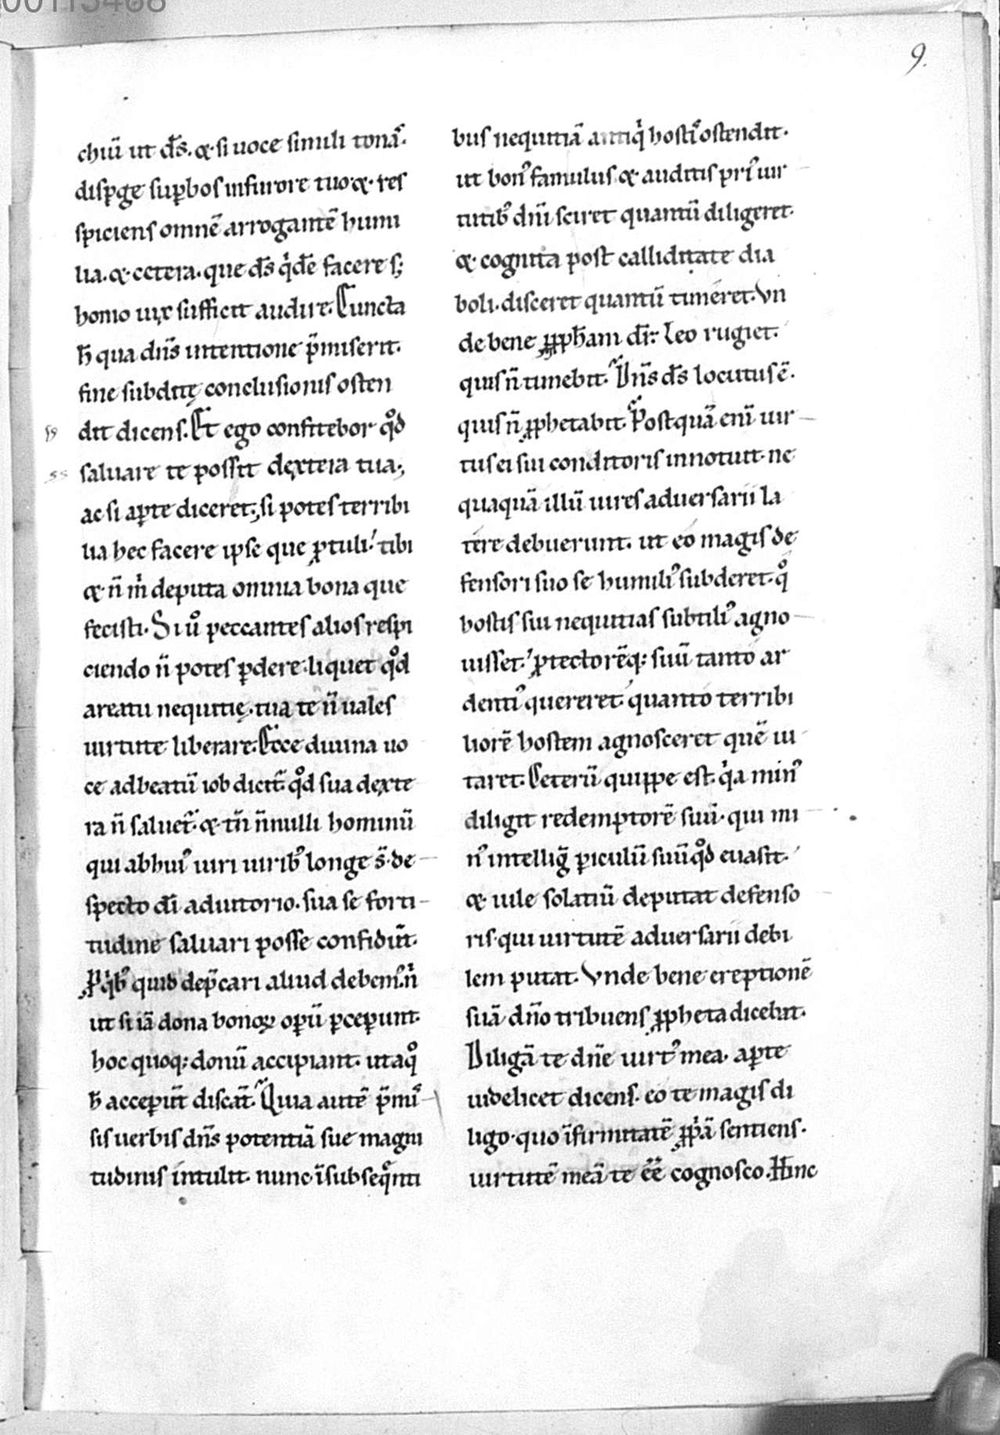 9.
chiū ut d̄s. & si uoce simili tonas̄.
disp̱ge sup̱bos in furore tuo. & res
spiciens omnē arrogantē humi
lia. & cetera. que d̄s q̇dē facere s;
homo uix sufficit audire. Cuncta
h̄ qua dn̄s intentione p̄miserit.
fine subditę conclusionis osten
dit dicens. Et ego confitebor qͦd
saluare te possit dextera tua;
ac si ap̱te diceret; si potes terribi
lia hec facere ipse que ꝓtuli. tibi
& n̄ ṁ deputa omnia bona que
fecisti. Si uͦ peccantes alios respi
ciendo n̄ potes p̱dere. liquet qͦd
a reatu nequitię tua te n̄ uales
uirtute liberare. Ecce diuina uo
ce ad beatū iob dicit̄. qͦd sua dexte
ra n̄ saluet̄. & tn̄ n̄nulli hominū
qui ab hui᷒ uiri uirib᷒ longe s̄. de
specto dī adiutorio. sua se forti
tudine saluari posse confidūt.
P q̇b᷒ quid dep̄cari aliud debem᷒. n̄
ut si iā dona bonoꝝ op̱ū p̱cep̱unt.
hoc quoq; donū accipiant. ut a qͦ
h̄ accep̱ūt discāt. Quia autē p̄mis
sis uerbis dn̄s potentiā sue magni
tudinis intulit. nunc ī subseqͣnti
bus nequitiā antiq̇ hosti᷒ ostendit.
ut bon᷒ famulus & auditis pri᷒ uir
tutib᷒ dn̄i sciret quantū diligeret.
& cognita post calliditate dia
boli. disceret quantū timeret. Vn
de bene ꝓph̄am dr̄. Leo rugiet.
quis n̄ timebit. Dn̄s d̄s locutus ē.
quis n̄ ꝓphetabit. Postquā enī uir
tus ei sui conditoris innotuit. ne
quaquā illū uires aduersarii la
tere debuerunt. ut eo magis de
fensori suo se humili᷒ subderet. qͦ
hostis sui nequitias subtili᷒ agno
uisset. ꝓtectorēq; suū tanto ar
denti᷒ quereret. quanto terribi
liorē hostem agnosceret quē ui
taret. Ceterū quippe est. q̇a min᷒
diligit redemptorē suū. qui mi
n᷒ intelliḡ p̱iculū suū qͦd euasit.
& uile solatiū deputat defenso
ris. qui uirtutē aduersarii debi
lem putat. Vnde bene ereptionē
suā dn̄o tribuens ꝓpheta dicebat.
Diligā te dn̄e uirt᷒ mea. ap̱te
uidelicet dicens. eo te magis di
ligo. quo īfirmitatē ꝓṗā sentiens.
uirtutē meā te ēē cognosco. Hinc